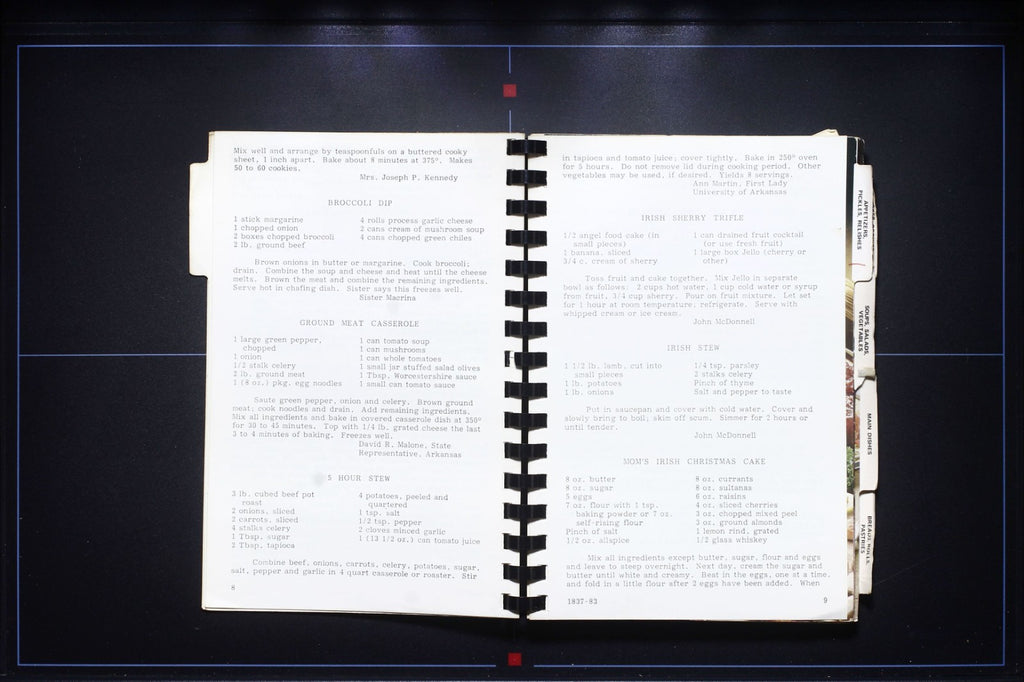 Mix well and arrange by teaspoonfuls on a buttered cooky
sheet, 1 inch apart. Bake about 8 minutes at 375°. Makes
50 to 60 cookies.
Mrs. Joseph P. Kennedy
BROCCOLI DIP
1 stick margarine
1 chopped onion
2 boxes chopped broccoli
2 lb. ground beef
4 rolls process garlic cheese
2 cans cream of mushroom soup
4 cans chopped green chiles
Brown onions in butter or margarine. Cook broccoli;
drain. Combine the soup and cheese and heat until the cheese
melts. Brown the meat and combine the remaining ingredients.
Serve hot in chafing dish. Sister says this freezes well.
Sister Macrina
GROUND MEAT CASSEROLE
1 large green pepper,
chopped
1 onion
1/2 stalk celery
2 lb. ground meat
1 (8 oz.) pkg. egg noodles
1 can tomato soup
1 can mushrooms
1 can whole tomatoes
1 small jar stuffed salad olives
1 Tbsp. Worcestershire sauce
1 small can tomato sauce
Saute green pepper, onion and celery. Brown ground
meat; cook noodles and drain. Add remaining ingredients.
Mix all ingredients and bake in covered casserole dish at 350°
for 30 to 45 minutes. Top with 1/4 lb. grated cheese the last
3 to 4 minutes of baking. Freezes well.
David R. Malone, State
Representative, Arkansas
5 HOUR STEW
3 lb. cubed beef pot
roast
2 onions, sliced
2 carrots, sliced
4 stalks celery
1 Tbsp. sugar
2 Tbsp. tapioca
4 potatoes, peeled and
quartered
1 tsp. salt
1/2 tsp. pepper
2 cloves minced garlic
1 (13 1/2 oz.) can tomato juice
Combine beef, onions, carrots, celery, potatoes, sugar,
salt, pepper and garlic in 4 quart casserole or roaster. Stir
8
in tapioca and tomato juice; cover tightly. Bake in 250° oven
for 5 hours. Do not remove lid during cooking period. Other
vegetables may be used, if desired. Yields 8 servings.
Ann Martin, First Lady
University of Arkansas
IRISH SHERRY TRIFLE
1/2 angel food cake (in
small pieces)
1 banana, sliced
3/4 c. cream of sherry
1 can drained fruit cocktail
(or use fresh fruit)
1 large box Jello (cherry or
other)
Toss fruit and cake together. Mix Jello in separate
bowl as follows: 2 cups hot water, 1 cup cold water or syrup
from fruit, 3/4 cup sherry. Pour on fruit mixture. Let set
for 1 hour at room temperature; refrigerate. Serve with
whipped cream or ice cream.
John McDonnell
IRISH STEW
1 1/2 lb. lamb, cut into
small pieces
1 lb. potatoes
1 lb. onions
1/4 tsp. parsley
2 stalks celery
Pinch of thyme
Salt and pepper to taste
Put in saucepan and cover with cold water. Cover and
slowly bring to boil; skim off scum. Simmer for 2 hours or
until tender.
John McDonnell
MOM'S IRISH CHRISTMAS CAKE
8 oz. butter
8 oz. sugar
5 eggs
7 oz. flour with 1 tsp.
baking powder or 7 oz.
self-rising flour
Pinch of salt
1/2 oz. allspice
8 oz. currants
8 oz. sultanas
6 oz. raisins
4 oz. sliced cherries
3 oz. chopped mixed peel
3 oz. ground almonds
1 lemon rind, grated
1/2 glass whiskey
Mix all ingredients except butter, sugar, flour and eggs
and leave to steep overnight. Next day, cream the sugar and
butter until white and creamy. Beat in the eggs, one at a time,
and fold in a little flour after 2 eggs have been added. When
1837-83
9
APPETIZERS,
PICKLES, RELISHES
SOUPS, SALADS,
VEGETABLES
MAIN DISHES
PASTRIES